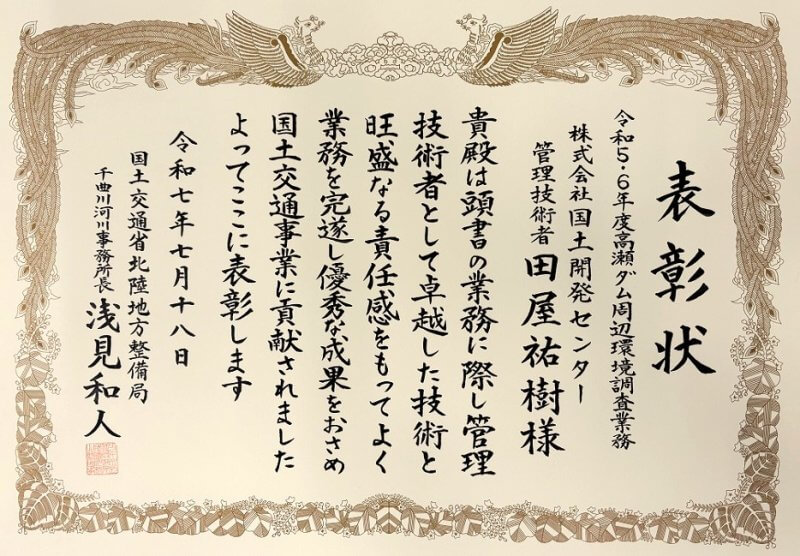 表彰状
令和5・6年度高瀬ダム周辺環境調査業務
株式会社国土開発センター
管理技術者 田屋祐樹様
貴殿は頭書の業務に際し管理
技術者として卓越した技術と
旺盛なる責任感をもってよく
業務を完遂し優秀な成果をおさめ
国土交通事業に貢献されました
よってここに表彰します
令和七年七月十八日
国土交通省北陸地方整備局
千曲川河川事務所長 浅見和人